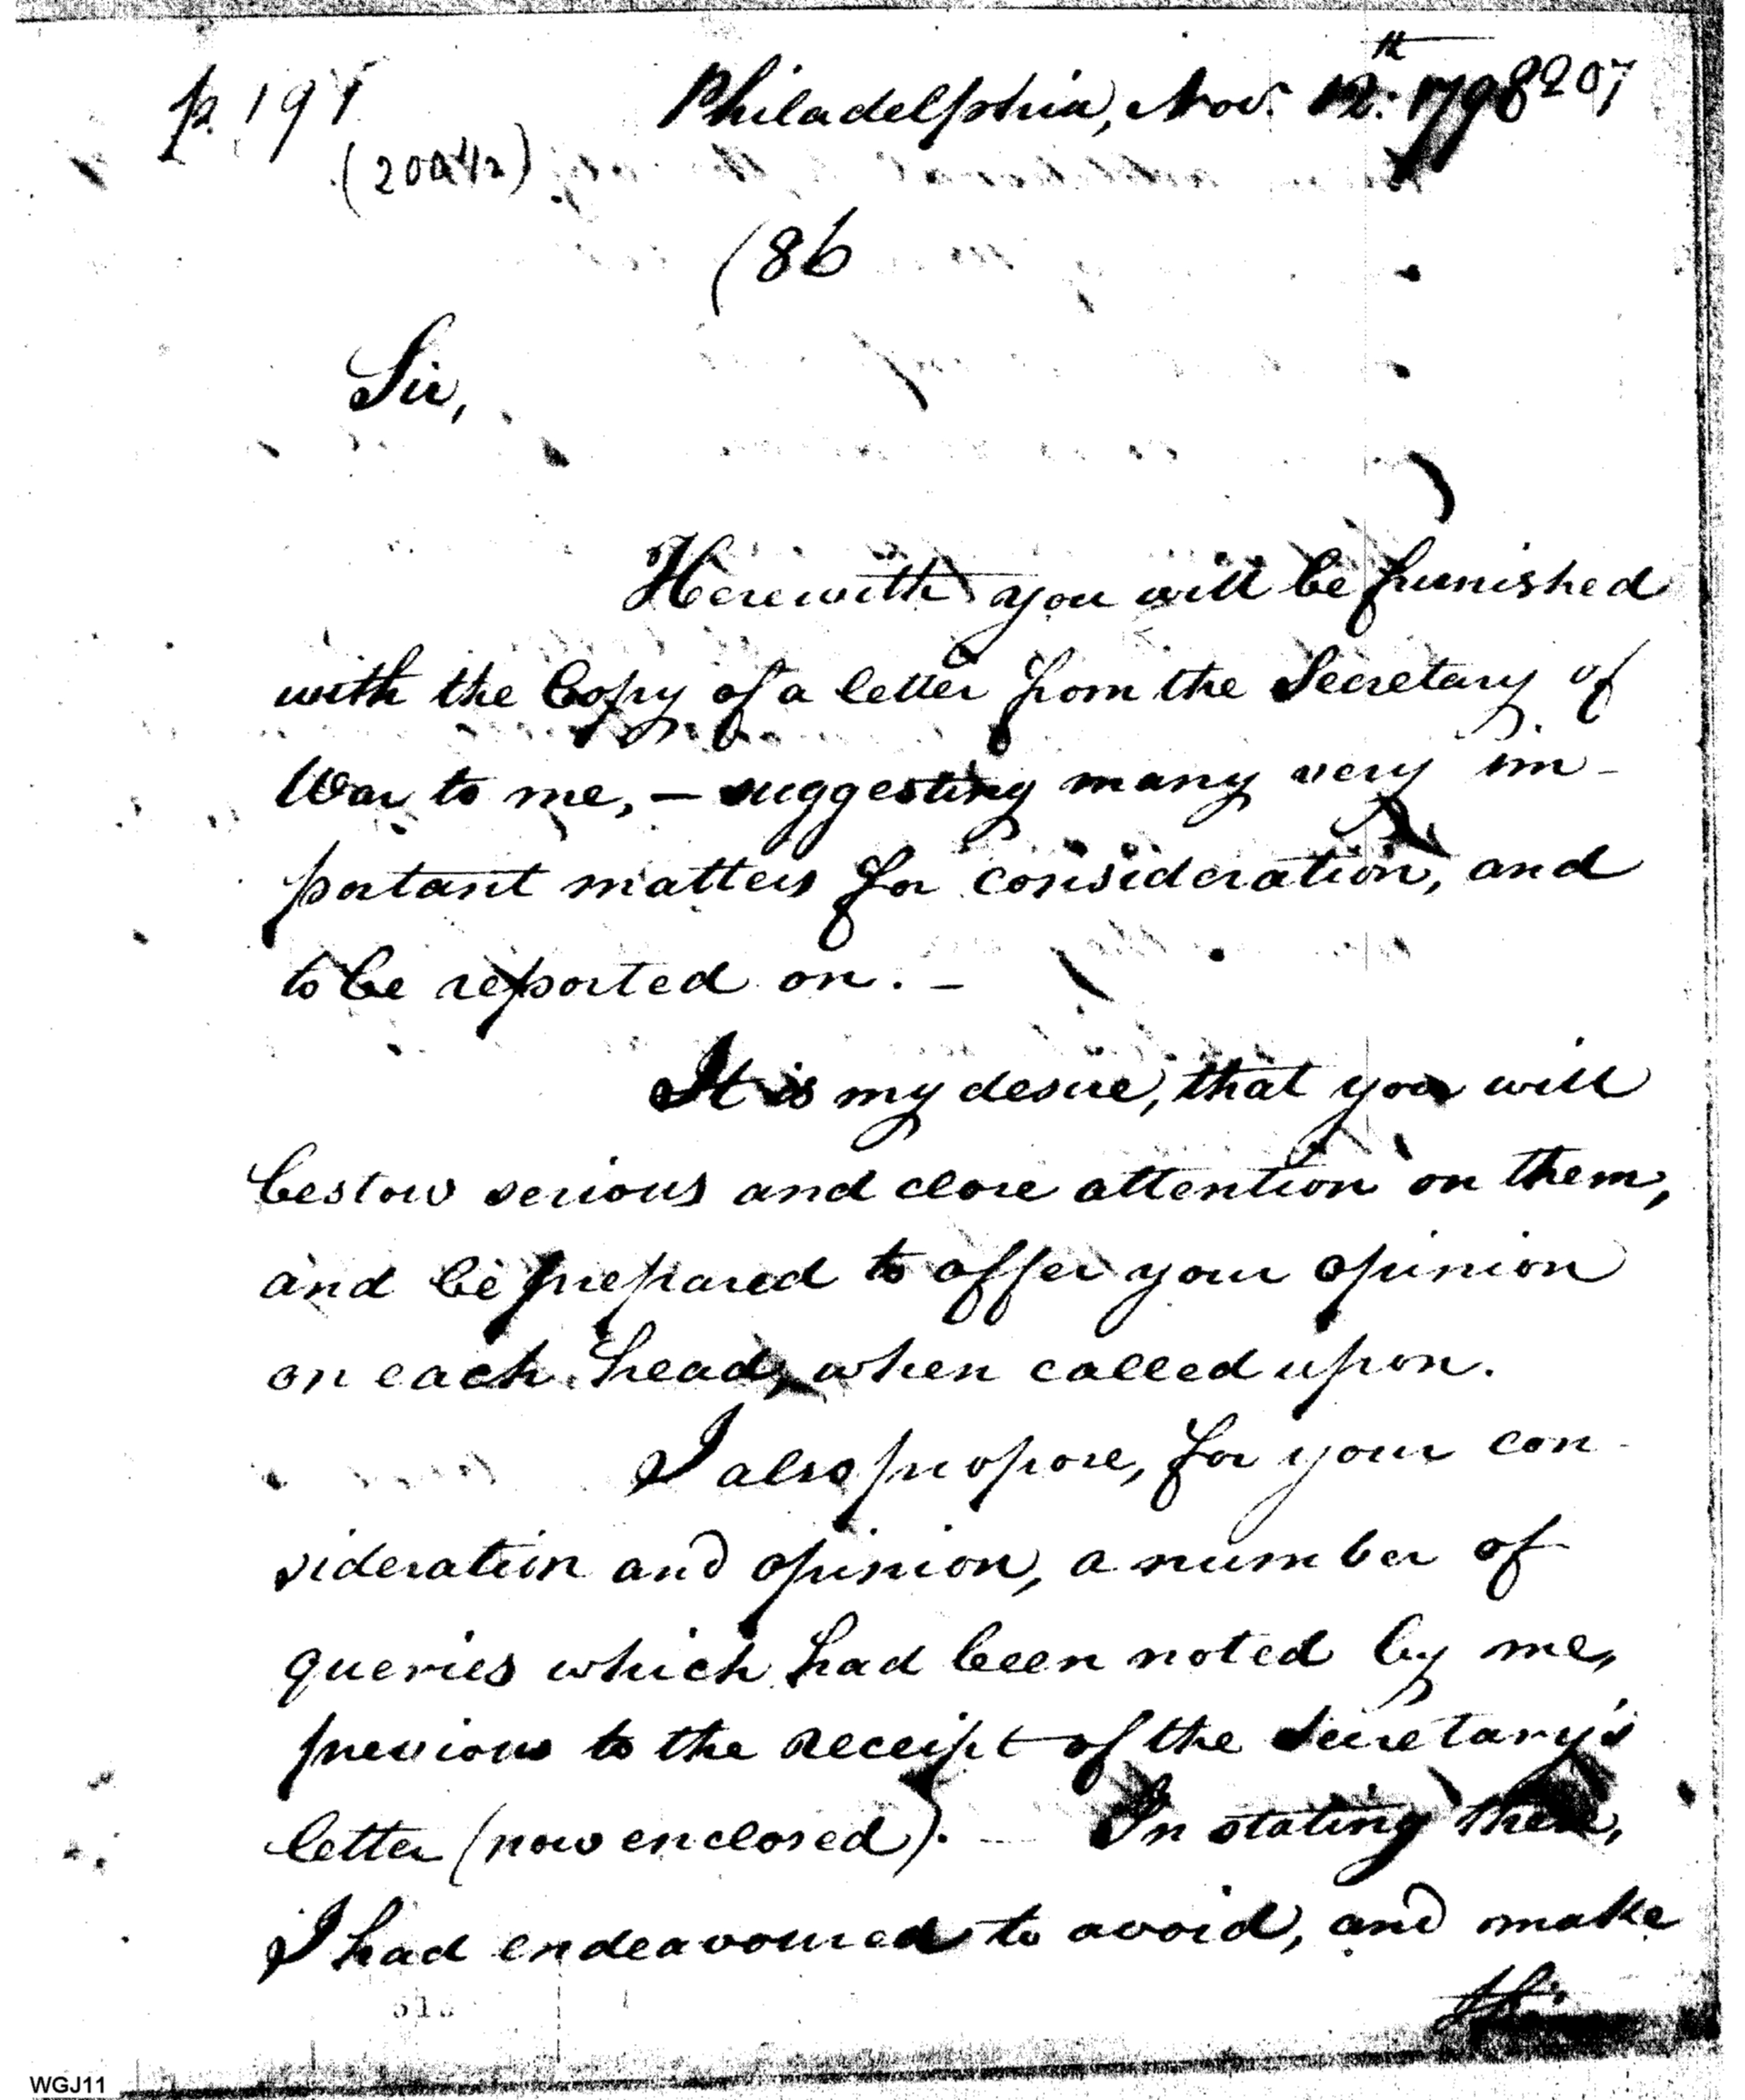 p. 191
Philadelphia, Nov. 12th: 1798
207
(200 1/2)
(86
Sir,
Herewith you will be furnished
with the Copy of a letter from the Secretary of
War to me, — suggesting many very im-
portant matters for consideration, and
to be reported on. —
It is my desire, that you will
bestow serious and close attention on them,
and be prepared to offer your opinion
on each head, when called upon.
I also propose, for your con-
sideration and opinion, a number of
queries which had been noted by me,
previous to the receipt of the Secretary's
letter (now enclosed). — In stating these,
I had endeavoured to avoid, and make
WGJ11